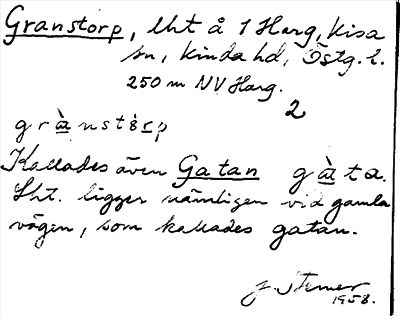 Granstorp, lht å 1 Harg, Kisa
sn, Kinda hd, Östg. l.
250 m NV Harg.
2
grànstòrp
Kallades även Gatan gàta.
Lht. ligger nämligen vid gamla
vägen, som kallades gatan.
1958.